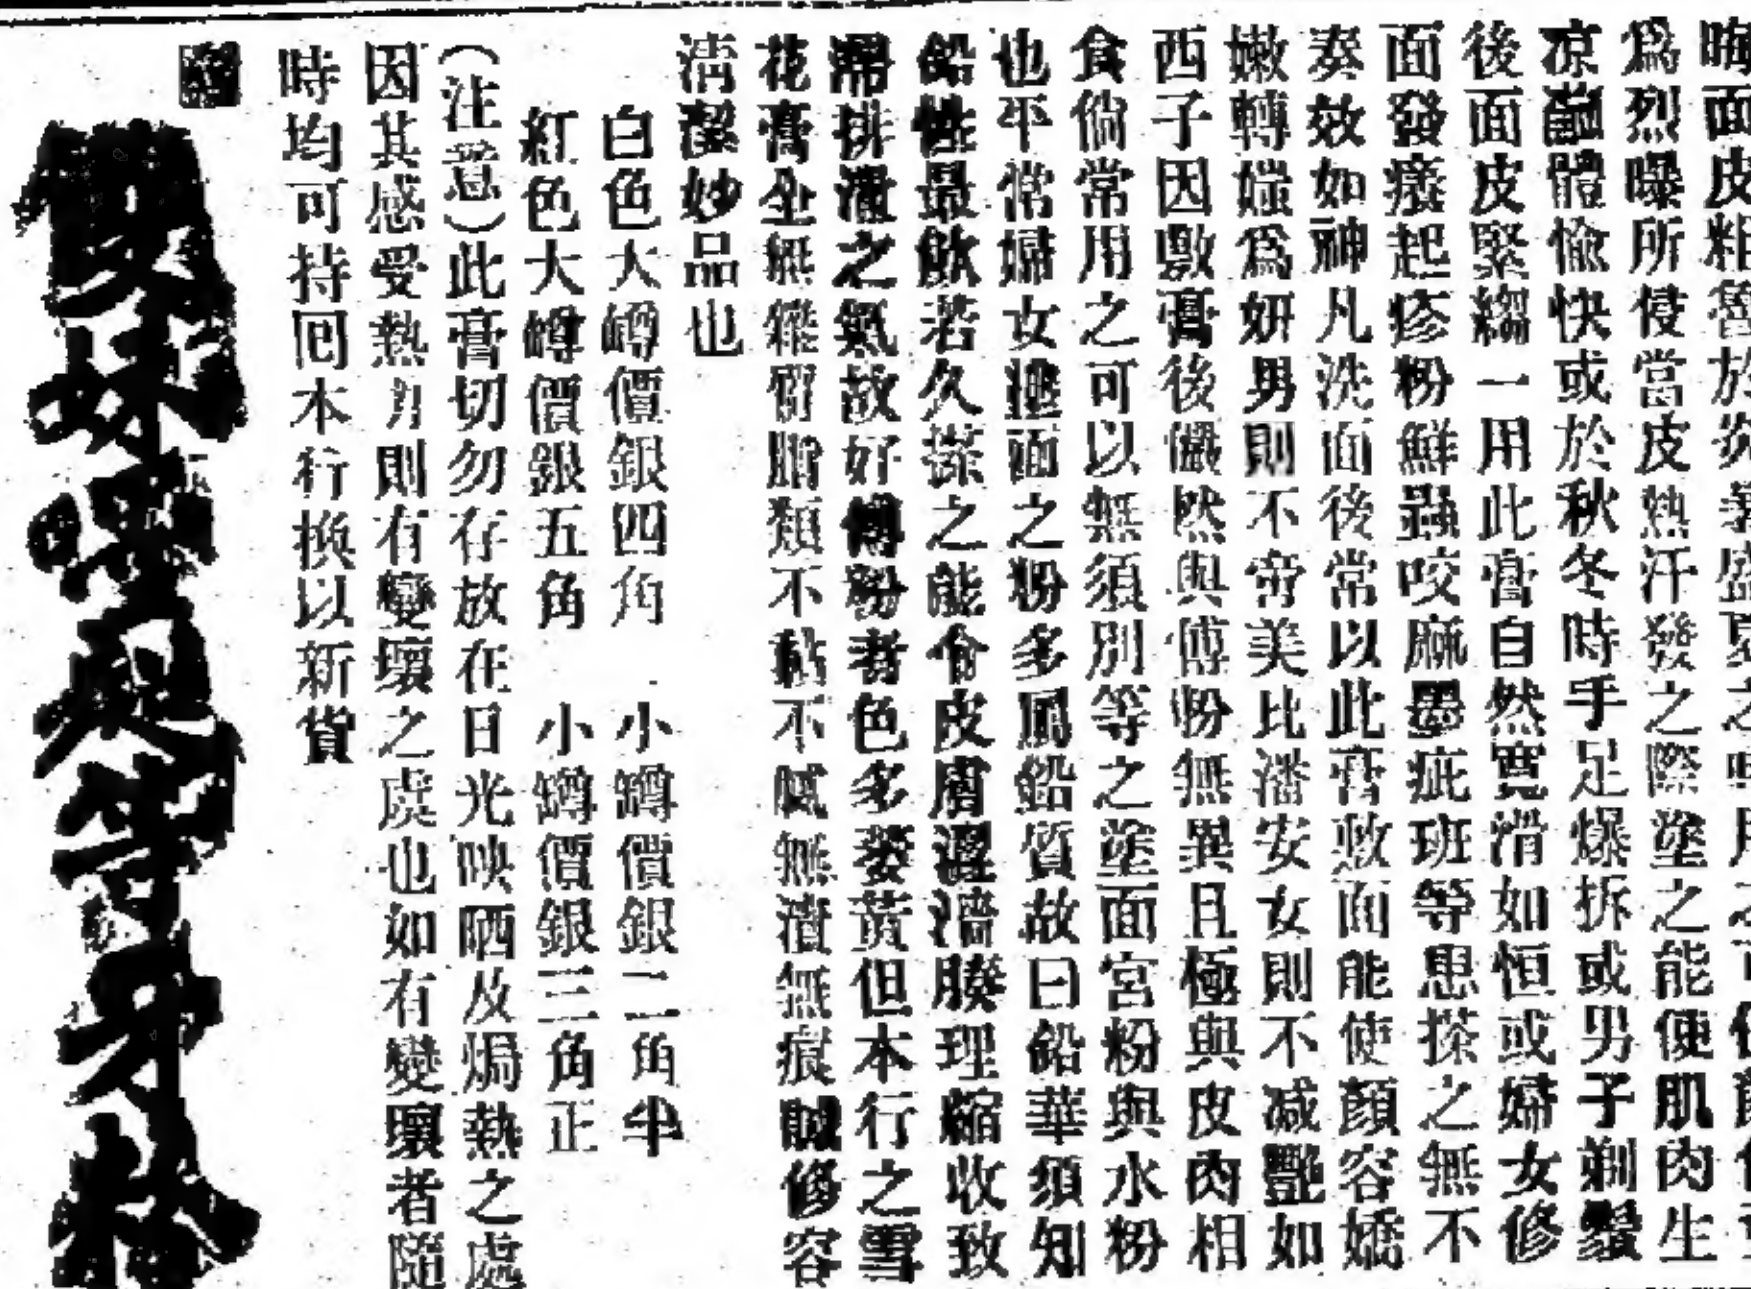 晦面皮粗魯於炎暑盛夏之時用之可使顏
爲烈曝所侵當皮熱汗發之際塗之能使肌肉生
凉體愉快或於秋冬時手足爆拆或男子剃鬚
後面皮緊縐一用此膏自然寬滑如恒或婦女修
面發癢起疹粉鮮蟲咬麻墨疵班等患搽之無不
奏效如神凡洗面後常以此膏敷面能使顏容嬌
嫩轉媸爲妍男則不啻美比潘安女則不减艷如
西子因敷膏後儼然與傅粉無異且極與皮肉相
食倘常用之可以無須別等之塗面宮粉與水粉
也平常婦女搽面之粉多屬鉛質故曰鉛華須知
鉛性最歛若久搽之能令皮膚澀滯腠理縮收致
滯排洩之氣故好傅粉者色多萎黃但本行之雪
花膏全無雜質脂類不黏不膩無漬無痕誠修容
淸潔妙品也
白色大罇價銀四角 小罇價銀二角半
紅色大罇價銀五角 小罇價銀三角正
(注意)此膏切勿存放在日光映晒及焗熱之處
因其感受熱力則有變壞之虞也如有變壞者隨
時均可持囘本行換以新貨